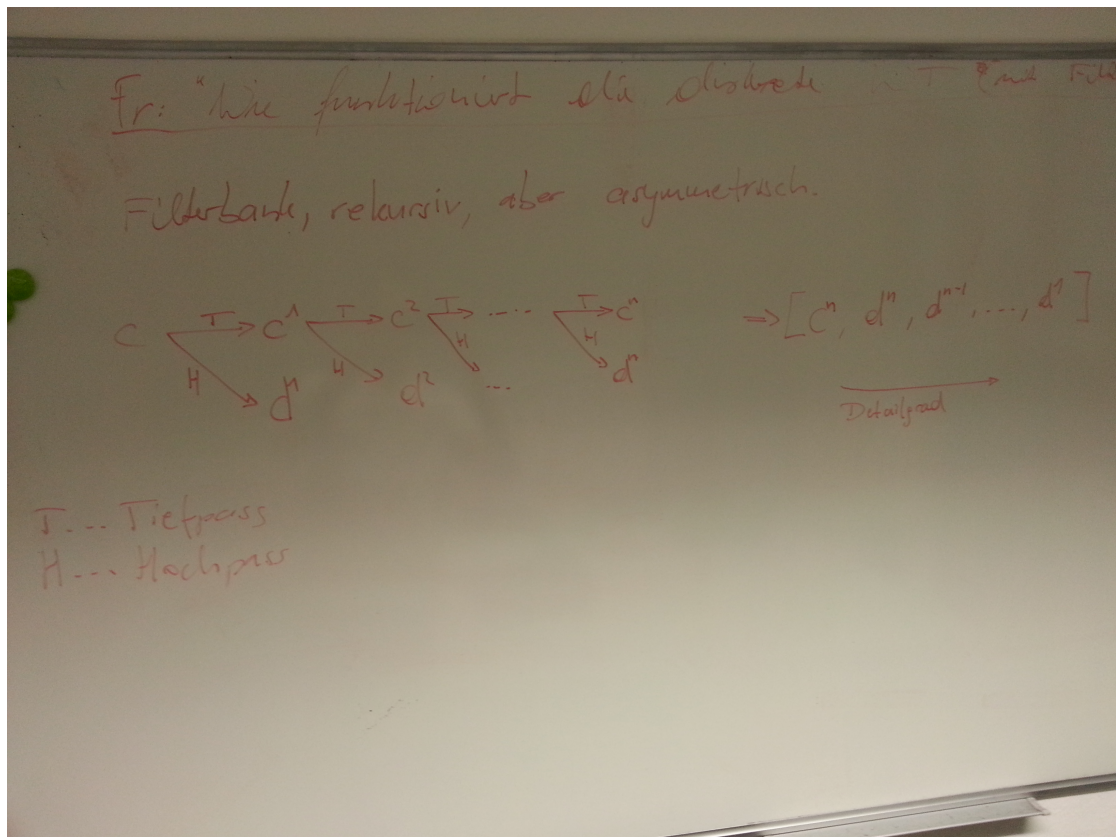 Fr: "Wie funktioniert die diskrete T (mit
Filterbank, rekursiv, aber asymmetrisch.
C T C¹ T C² T .... T Cⁿ ⇒ [Cⁿ, dⁿ, dⁿ⁻¹, ..., d¹]
H d¹ H d² H ... H dⁿ
Detailgrad
T... Tiefpass
H... Hochpass